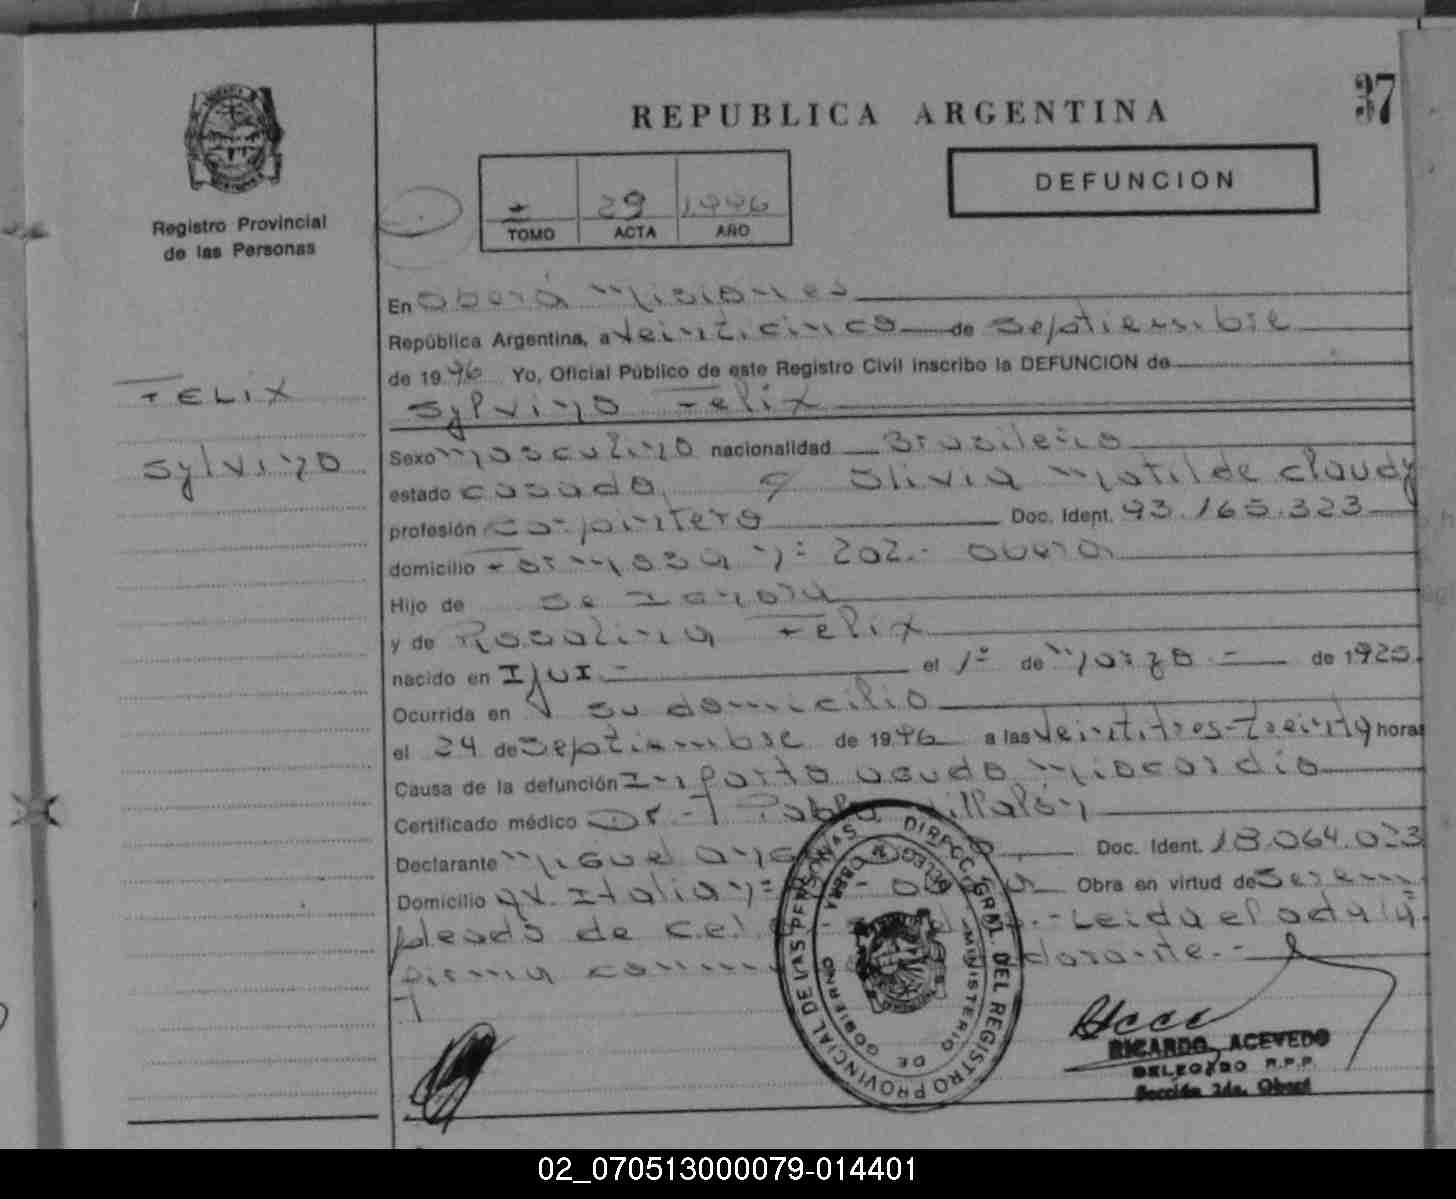 37
REPUBLICA ARGENTINA
DEFUNCION
29 1996
TOMO ACTA AÑO
Registro Provincial
de las Personas
FELIX
Sylvino
En Oberá Misiones
República Argentina, a Veinticinco de Septiembre
de 1996 Yo, Oficial Público de este Registro Civil inscribo la DEFUNCION de
Sylvino Felix
Sexo Masculino nacionalidad Brasileño
estado casado c/ Olivia Matilde Claudy
profesión Carpintero Doc. Ident. 93.165.323
domicilio Formosa nº 202.- Oberá
Hijo de Se Ignora
y de Rosalina Felix
nacido en Ijui el 1º de Marzo de 1925
Ocurrida en su domicilio
el 24 de Septiembre de 1996 a las Veintitres-treinta horas
Causa de la defunción Infarto agudo Miocardio
Certificado médico Dr. Pablo Villalón
Declarante Miguel Doc. Ident. 18.064.023
Domicilio Av. Italia nº Obra en virtud de Ser em
pleado de Leida el acta la
firma declarante.-
DIRECC. GRAL. DEL REGISTRO PROVINCIAL DE LAS PERSONAS
MINISTERIO DE GOBIERNO
RICARDO ACEVEDO
DELEGADO R.P.P.
Sección 2da. Oberá
02_070513000079-014401